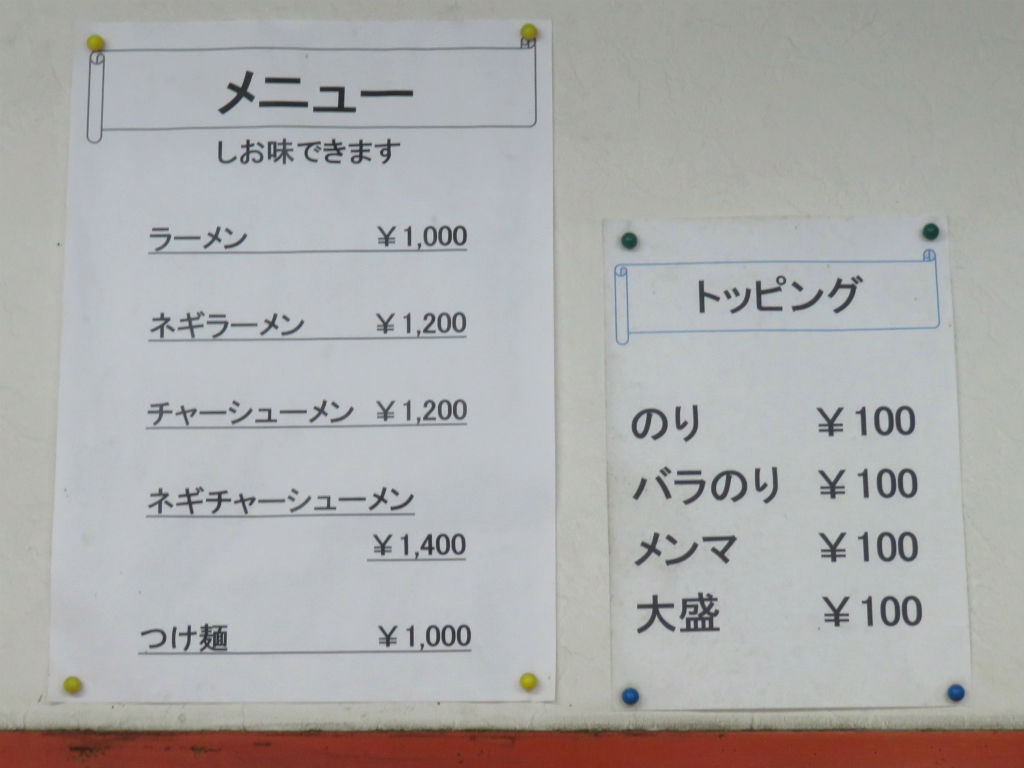 メニュー
しお味できます
ラーメン ￥1,000
ネギラーメン ￥1,200
チャーシューメン ￥1,200
ネギチャーシューメン
￥1,400
つけ麺 ￥1,000
トッピング
のり ￥100
バラのり ￥100
メンマ ￥100
大盛 ￥100